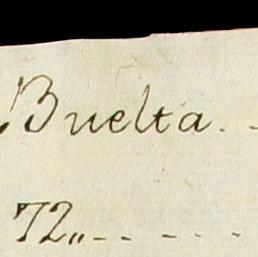 Buelta. -
72,,- - - - - -